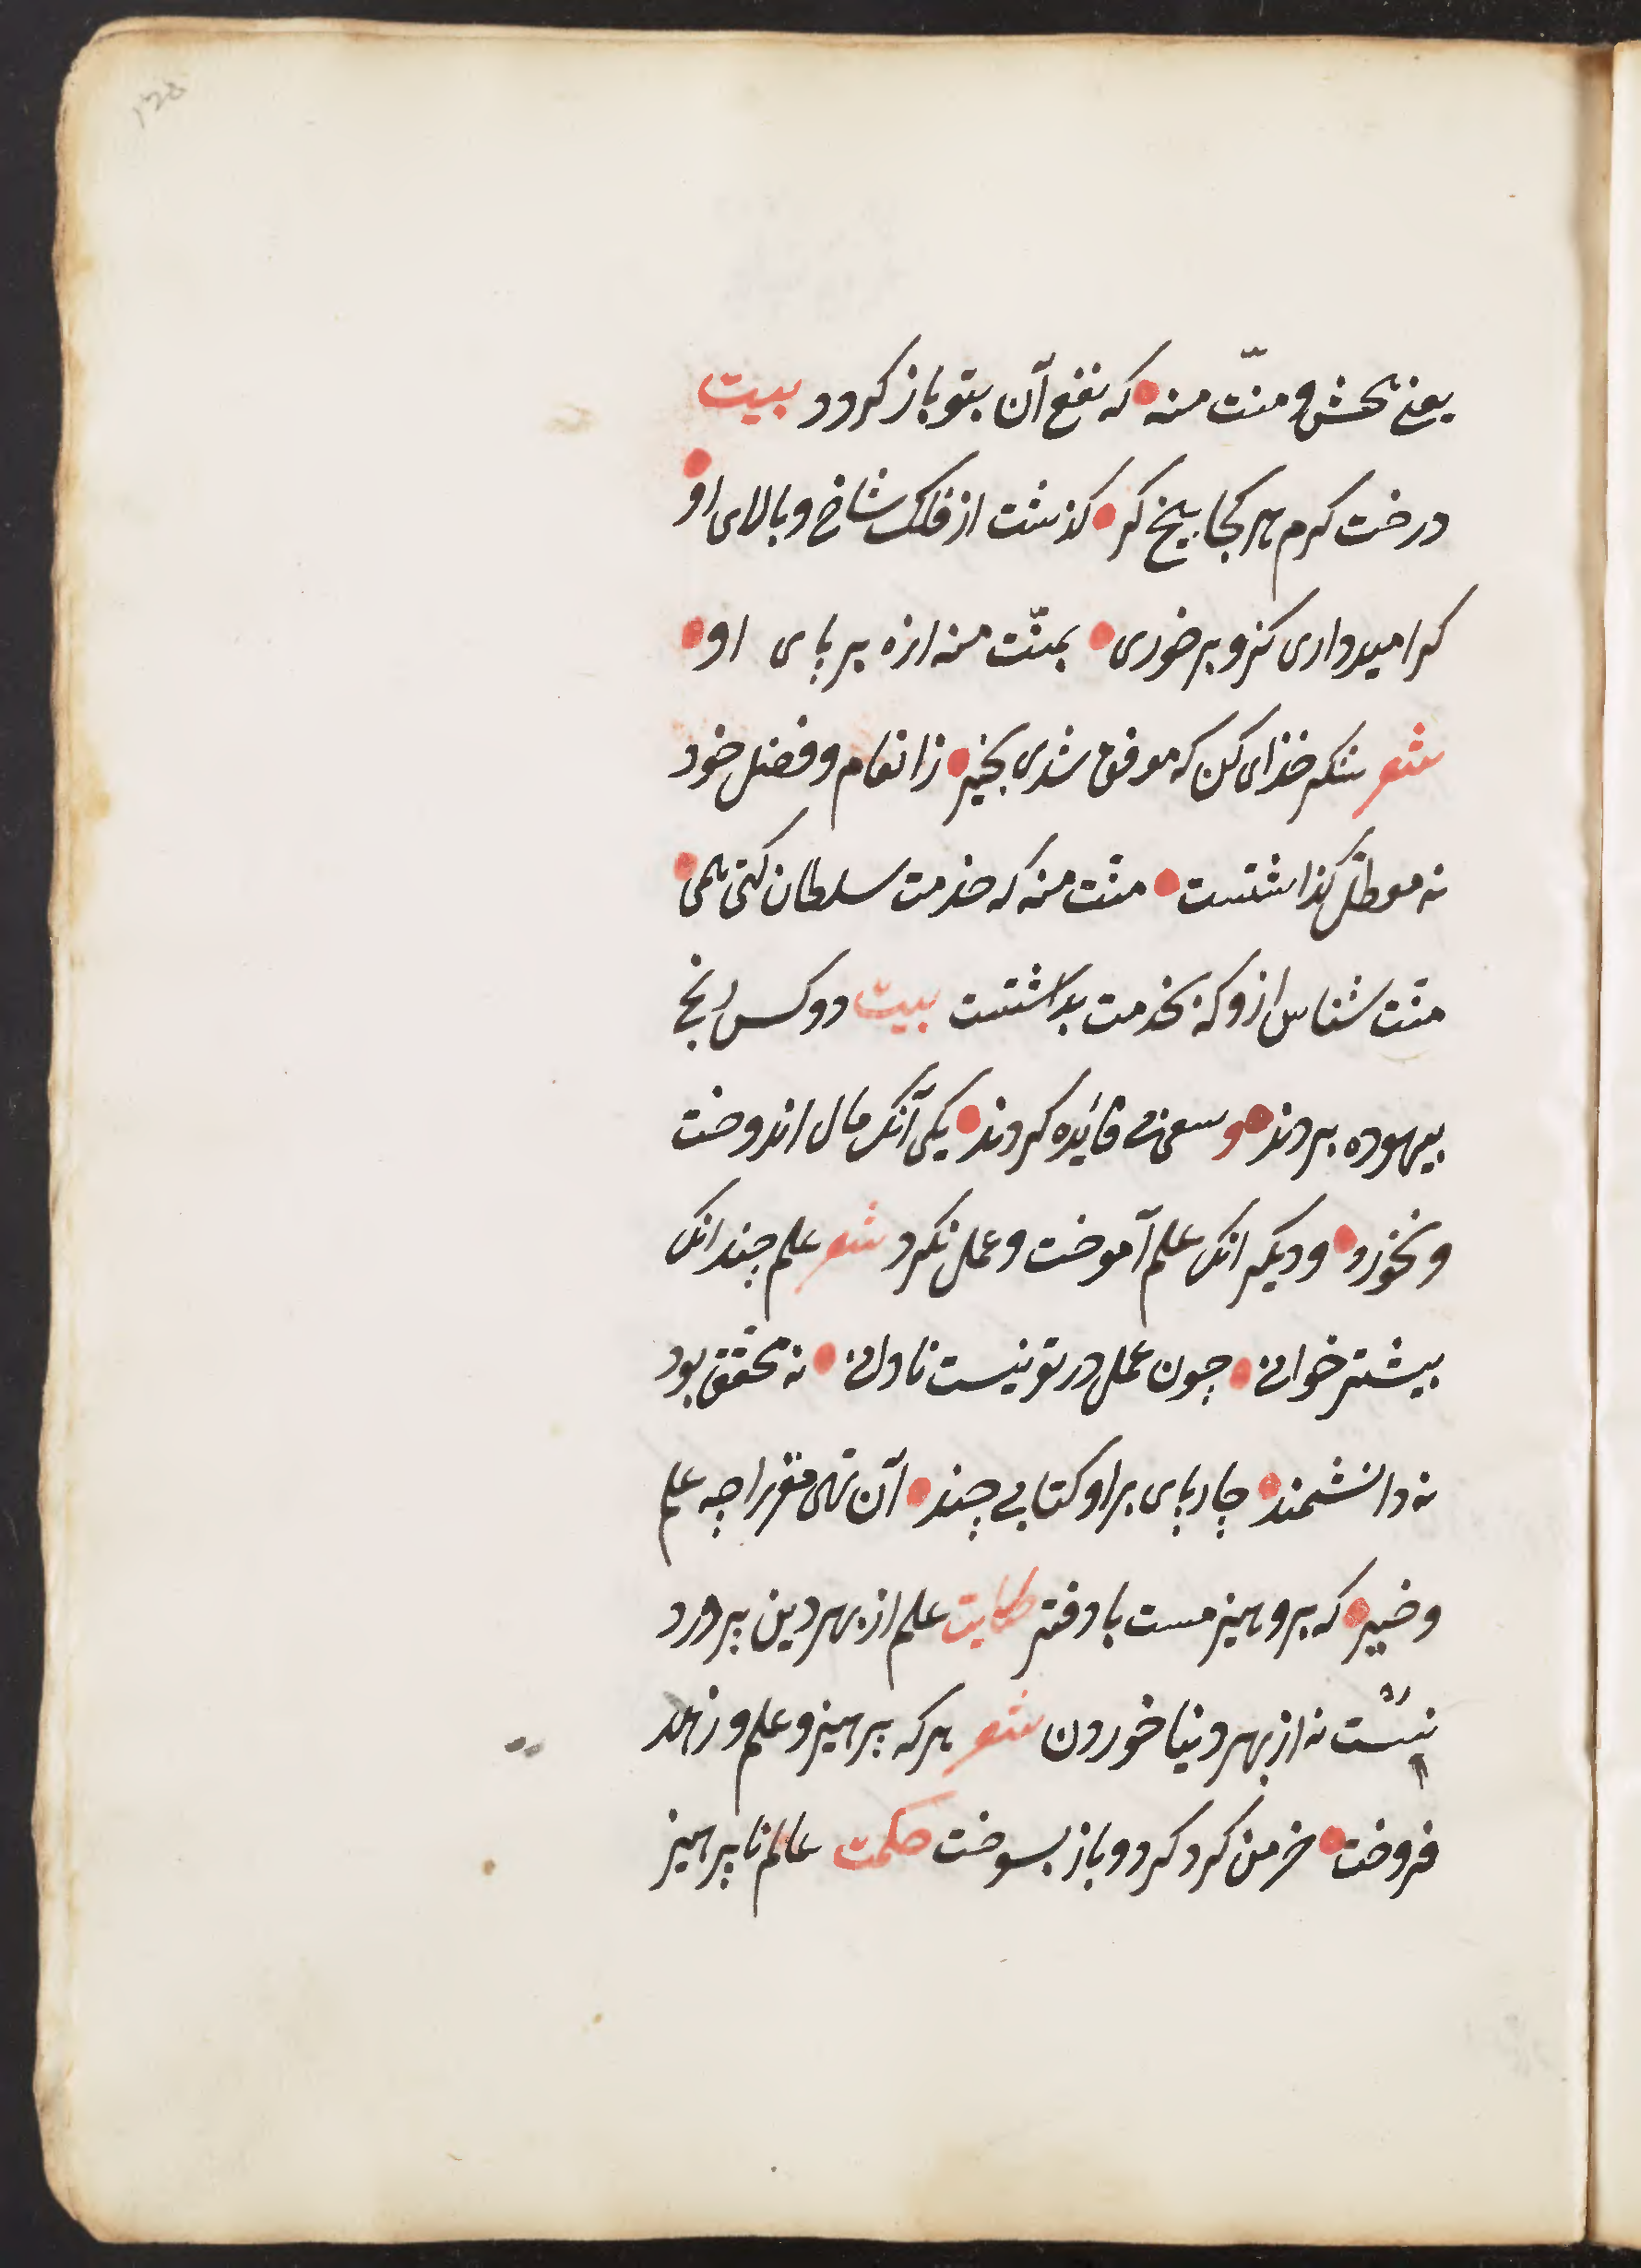 یعنی بخش و منّت منه که نفع آن بتو باز کردد بیت
درخت کرم هر کجا بیخ کر کذشت از فلک شاخ و بالای او
کر امیدواری کزو برخوری بمنّت منه ازه بر پای او
شعر شکر خذای کن که موفق شدی بخیر ز انعام و فضل خود
نه موطّل کذاشتست منّت منه که خذمت سلطان کنی همی
منّت شناس ازو که بخذمت بداشتست بیت دو کس رنج
بیهوده بردند و سعی بی فائده کردند یکی آنک مال اندوخت
و نخورد و دیکر انک علم آموخت و عمل نکرد شعر علم چندانک
بیشتر خوانی چون عمل در تو نیست نادانی نه محقق بود
نه دانشمند چارپای برو کتابی چند آن تهی مغز را چه علم
و خبر که برو هیزمست یا دفتر حکایت علم از بهر دین پرورد
نیست نه از بهر دنیا خوردن شعر هرکه پرهیز و علم و زهد
فروخت خرمن کرد کرد و باز بسوخت حکمت عالم ناپرهیز